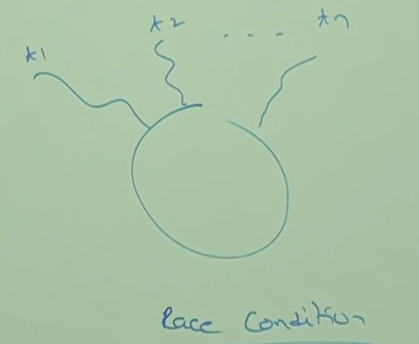 t1 t2 .... tn
Race Condition